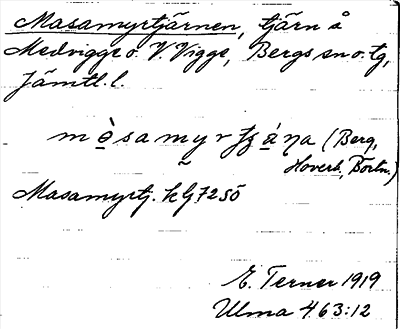 Masamyrtjärnen, tjärn å
Medvigge o. V. Vigge, Bergs sn o. tg,
Jämtl. l.
mòsamyrtjána (Berg,
Hoverb., Bortn.)
Masamyrtj. kbl 72 SÖ
E. Terner 1919
Ulma 463:12